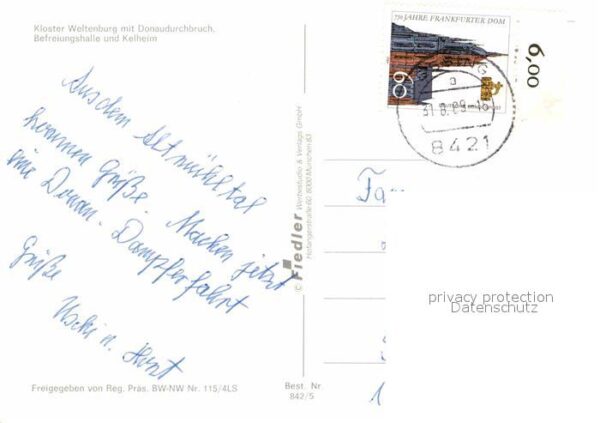 Kloster Weltenburg mit Donaudurchbruch,
Befreiungshalle und Kelheim
Aus dem Altmühltal
kommen Grüße. Machen jetzt
eine Donau-Dampferfahrt
Grüße
Uschi u. Horst
Freigegeben von Reg. Präs. BW-NW Nr. 115/4LS
Best. Nr
842/5
© Fiedler Werbestudio & Verlags GmbH
750 JAHRE FRANKFURTER DOM
60
6,00
a
31.8.89-16
8421
Fa
privacy protection
Datenschutz